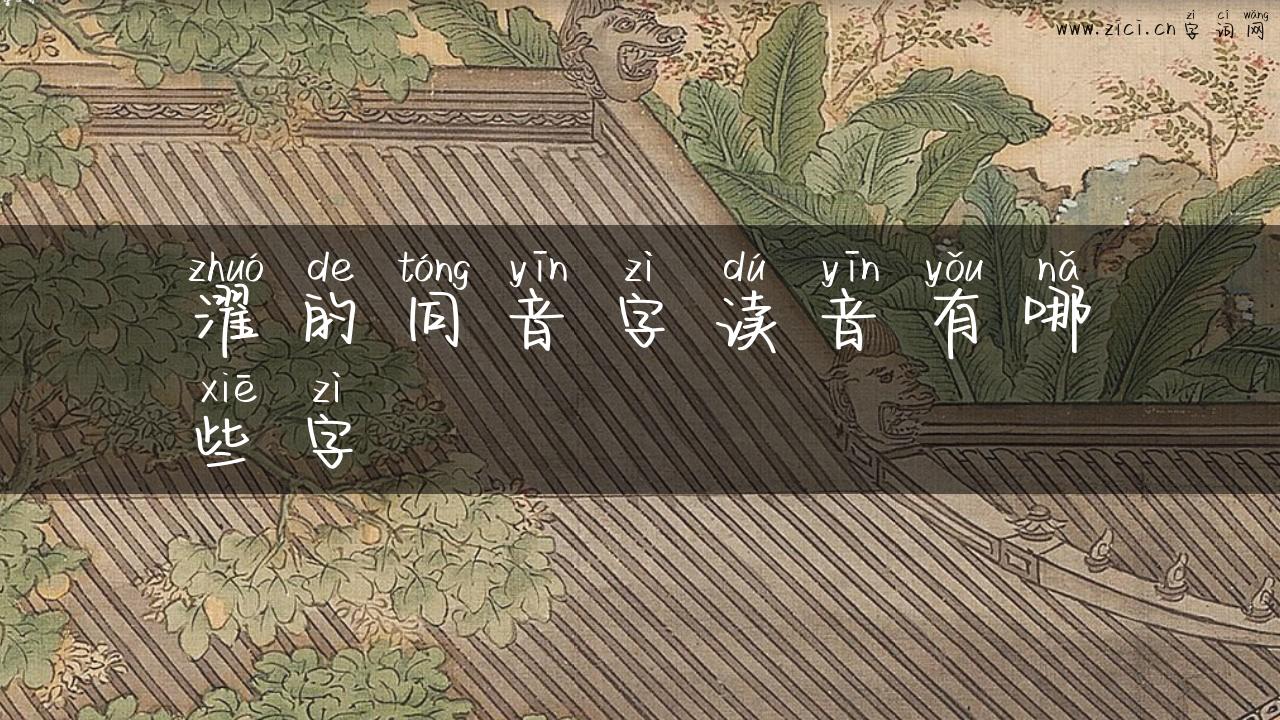 zì cí wǎng
www.zici.cn 字词网
zhuó de tóng yīn zì dú yīn yǒu nǎ
濯的同音字读音有哪
xiē zì
些字